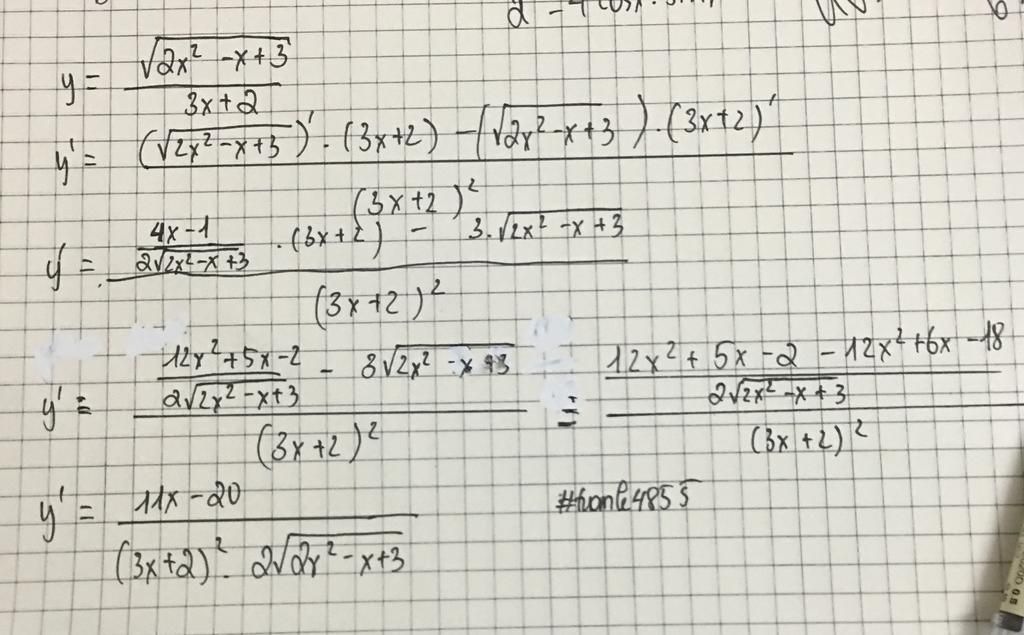 2 - 4cosx.
y = √(2x² - x + 3) / (3x + 2)
y' = ((√(2x² - x + 3))' . (3x + 2) - (√(2x² - x + 3)) . (3x + 2)') / (3x + 2)²
y' = ((4x - 1) / (2√(2x² - x + 3)) . (3x + 2) - 3.√(2x² - x + 3)) / (3x + 2)²
y' = ((12x² + 5x - 2) / (2√(2x² - x + 3)) - 3√(2x² - x + 3)) / (3x + 2)² = ((12x² + 5x - 2 - 12x² + 6x - 18) / (2√(2x² - x + 3))) / (3x + 2)²
y' = (11x - 20) / ((3x + 2)² . 2√(2x² - x + 3)) #tranle4855
0.5